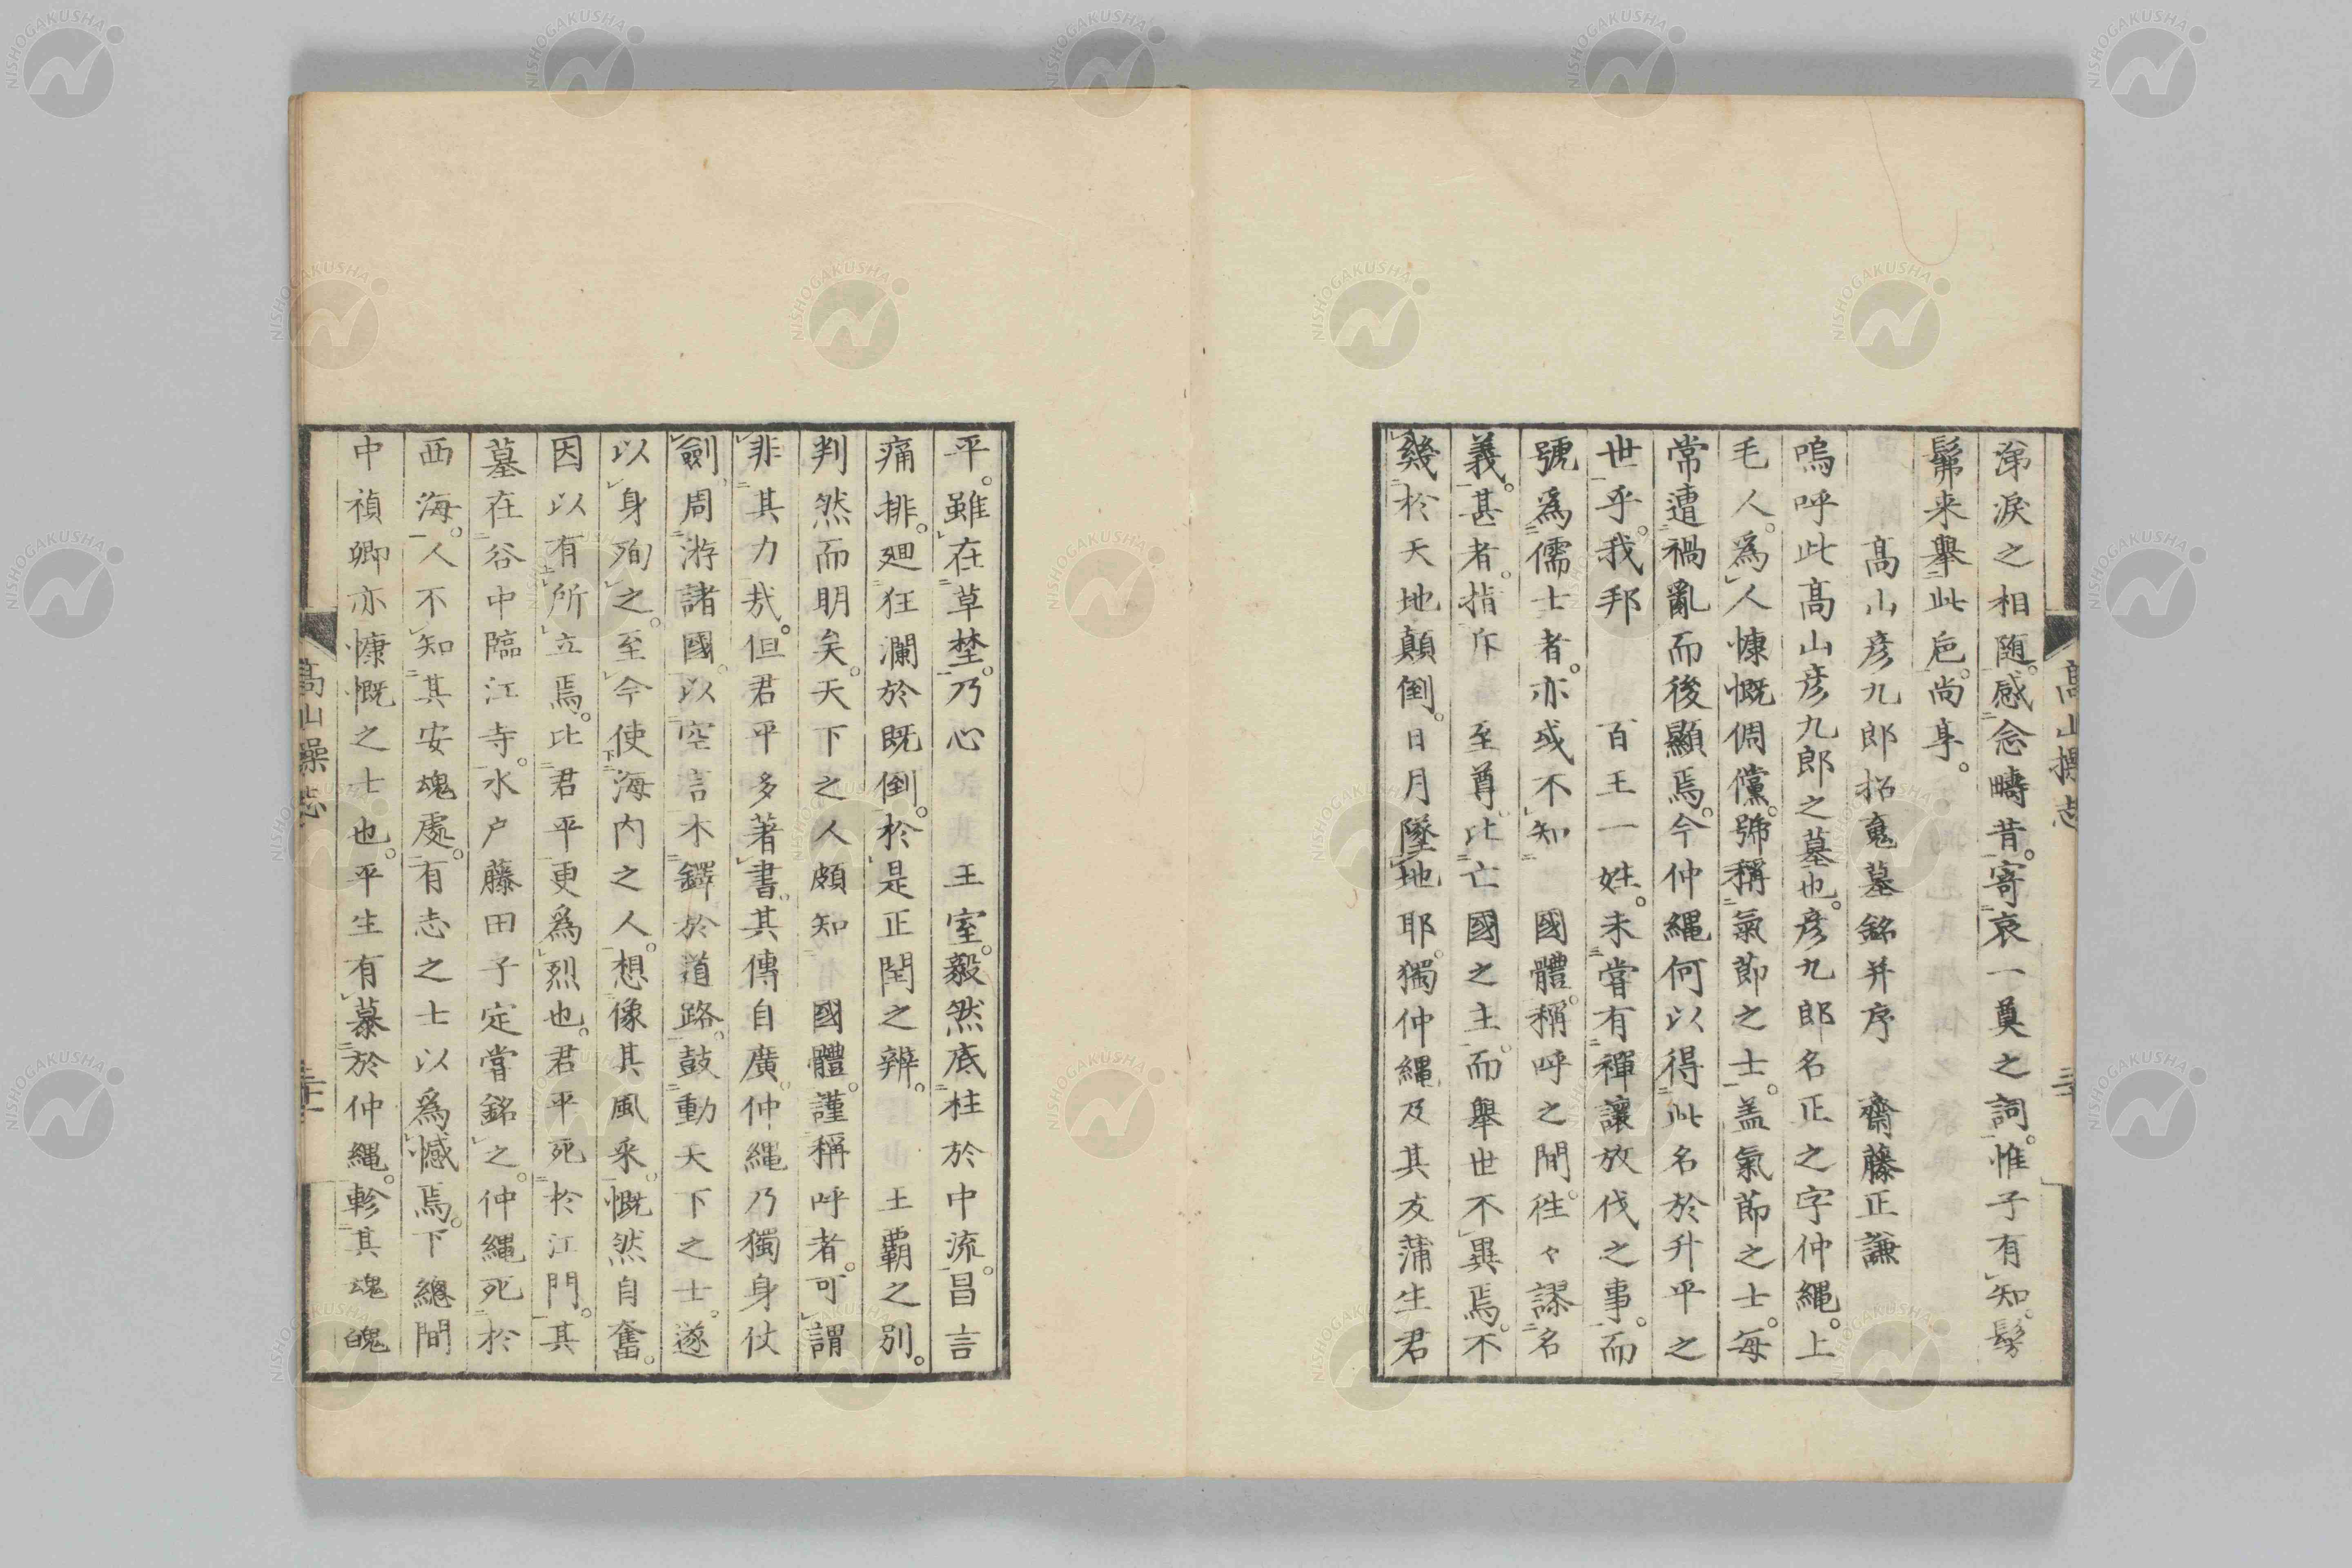 涕淚之相随。感念疇昔。寄哀一奠之詞。惟子有知。髣
髴来舉此巵。尚享。
高山彦九郎招䰟墓銘并序　齋藤正謙
嗚呼此髙山彦九郎之墓也。彦九郎名正之字仲縄。上
毛人。為人慷慨倜儻。號稱氣節之士。盖氣節之士。每
常遭禍亂而後顯焉。今仲縄何以得此名於升平之
世乎。我邦　百王一姓。未嘗有禪讓放伐之事。而
號為儒士者。亦或不知　國體。稱呼之間。往々謬名
義。甚者。指斥　至尊。比亡國之主。而舉世不異焉。不
幾於天地顛倒。日月墜地耶。獨仲縄及其友蒲生君
平。雖在草埜。乃心　王室。毅然底柱於中流。昌言
痛排。廻狂瀾於既倒。於是正閏之辨。　王覇之别。
判然而明矣。天下之人頗知　國體。謹稱呼者。可謂
非其力哉。但君平多著書。其傳自廣。仲縄乃獨身仗
劍周游諸國。以空言木鐸於道路。鼓動天下之士。遂
以身殉之。至今使海内之人。想像其風采。慨然自奮。
因以有所立焉。比君平更為烈也。君平死於江門。其
墓在谷中臨江寺。水户藤田子定嘗銘之。仲縄死於
西海。人不知其安魂處。有志之士以為憾焉。下總間
中禎卿亦慷慨之士也。平生有慕於仲縄。軫其魂魄
髙山操志